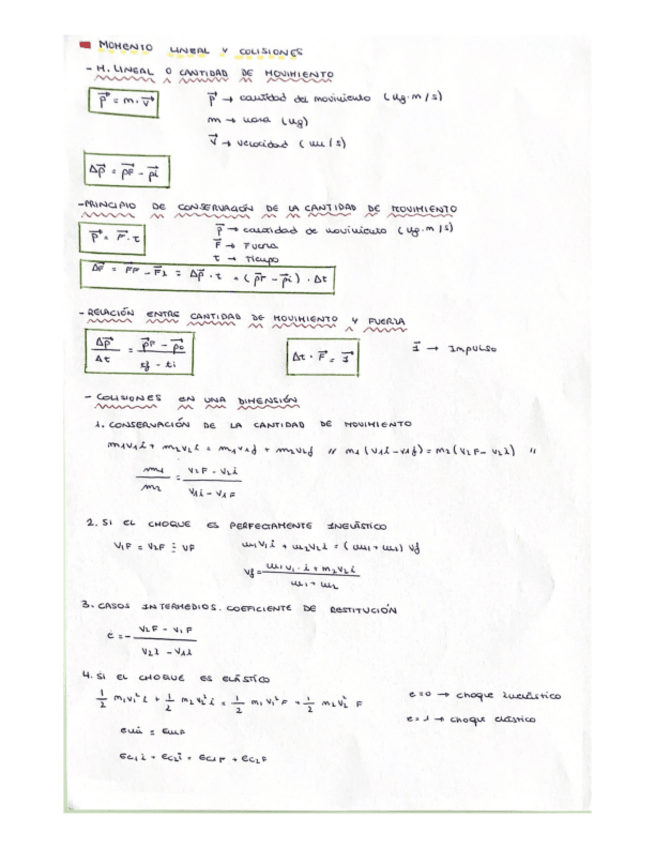 MOMENTO LINEAL Y COLISIONES
- M. LINEAL O CANTIDAD DE MOVIMIENTO
p⃗ = m · v⃗
p⃗ → cantidad del movimiento (kg·m/s)
m → masa (kg)
v⃗ → velocidad (m/s)
Δp⃗ = p⃗F - p⃗i
-PRINCIPIO DE CONSERVACIÓN DE LA CANTIDAD DE MOVIMIENTO
p⃗ = F⃗ · t
p⃗ → cantidad de movimiento (kg·m/s)
F⃗ → Fuerza
t → Tiempo
ΔF⃗ = F⃗F - F⃗i = Δp⃗ · t = (p⃗F - p⃗i) · Δt
- RELACIÓN ENTRE CANTIDAD DE MOVIMIENTO Y FUERZA
Δp⃗/Δt = (p⃗F - p⃗0)/(tf - ti)
Δt · F⃗ = I⃗
I⃗ → Impulso
- COLISIONES EN UNA DIMENSIÓN
1. CONSERVACIÓN DE LA CANTIDAD DE MOVIMIENTO
m1v1i + m2v2i = m1v1f + m2v2f // m1(v1i - v1f) = m2(v2F - v2i) //
m1/m2 = (v2F - v2i)/(v1i - v1F)
2. SI EL CHOQUE ES PERFECTAMENTE INELÁSTICO
v1F = v2F = vF
m1v1i + m2v2i = (m1 + m2) vf
vf = (m1v1·i + m2v2i)/(m1 + m2)
3. CASOS INTERMEDIOS. COEFICIENTE DE RESTITUCIÓN
e = - (v2F - v1F)/(v2i - v1i)
4. SI EL CHOQUE ES ELÁSTICO
1/2 m1v1²i + 1/2 m2v2²i = 1/2 m1v1²F + 1/2 m2v2²F
e=0 → choque inelástico
e=1 → choque elástico
Ec1i + Ec2i = Ec1F + Ec2F